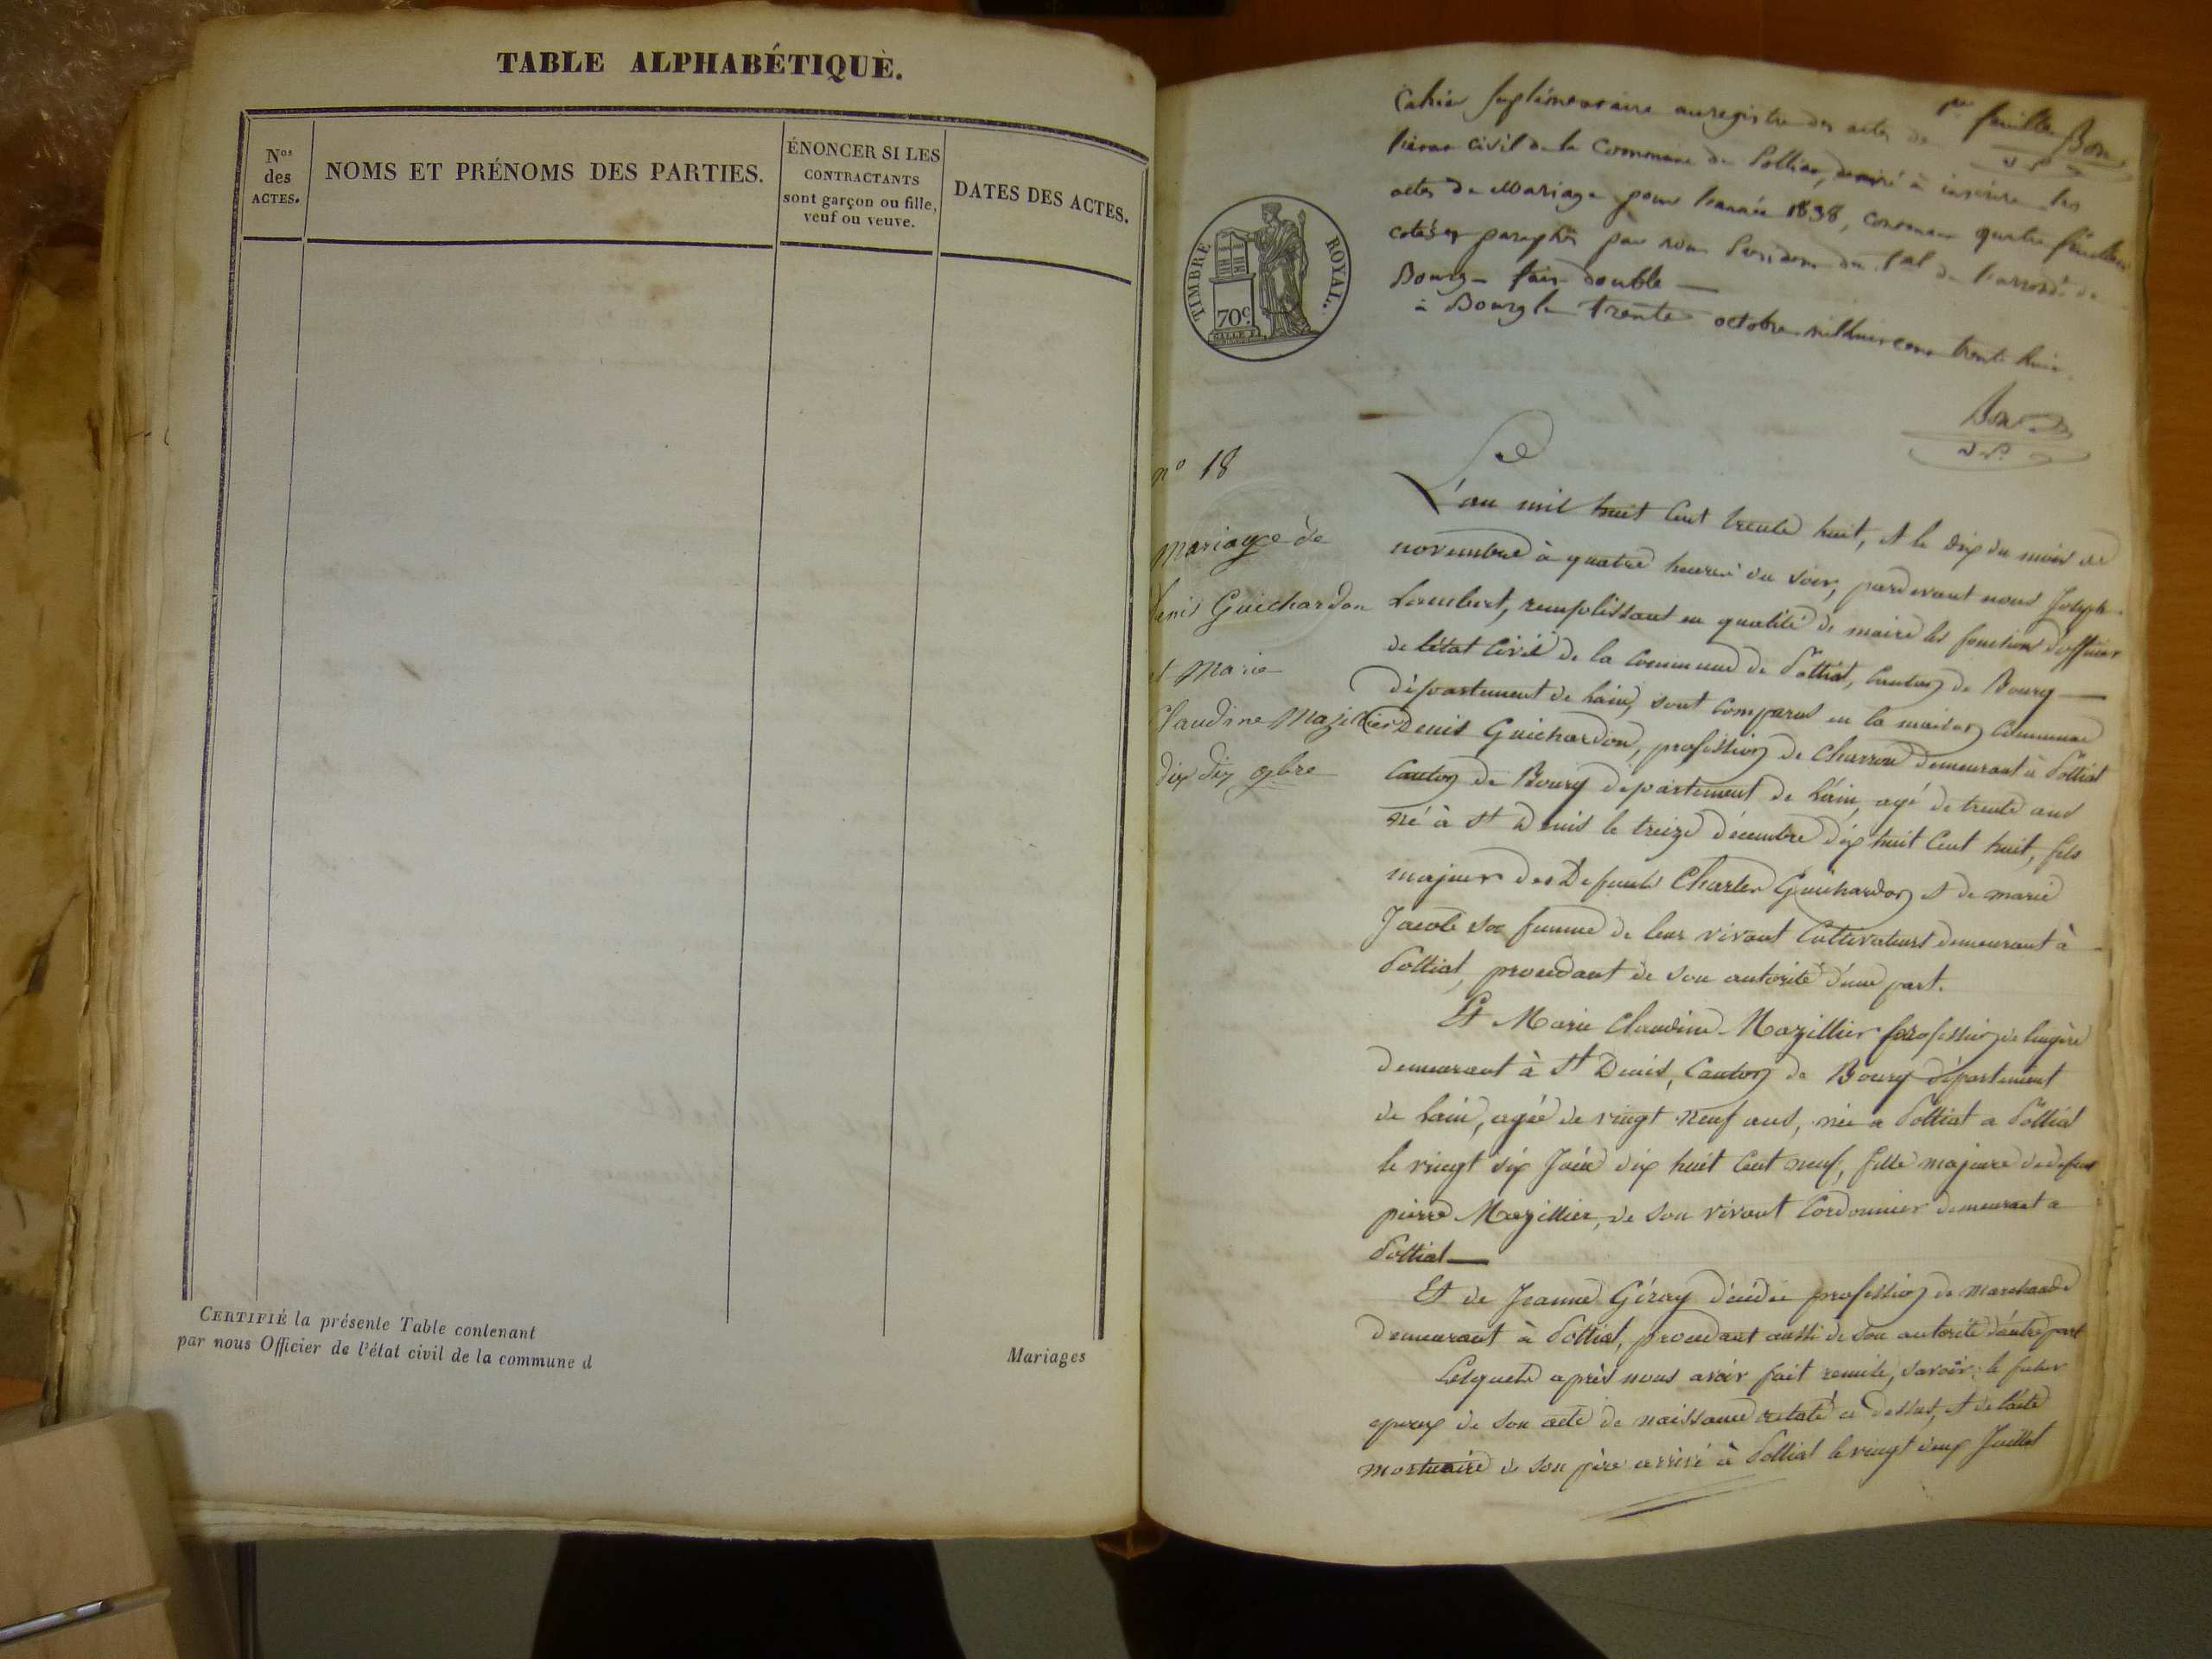 TABLE ALPHABÉTIQUE.
Nos des ACTES.
NOMS ET PRÉNOMS DES PARTIES.
ÉNONCER SI LES
CONTRACTANTS
sont garçon ou fille,
veuf ou veuve.
DATES DES ACTES.
CERTIFIÉ la présente Table contenant
par nous Officier de l'état civil de la commune d
Mariages
1re feuille
Bon
Cahier suplémentaire au registre des actes de
l'état civil de la Commune de Polliat, destiné à inscrire les
actes de Mariage pour l'année 1838, contenant quatre feuillets
cotés et paraphés par nous Président du tal de l'arrondt. de
Bourg - fait double —
à Bourg le trente octobre mil huit cent trente huit.
Bon
TIMBRE ROYAL.
70c.
n° 18
Mariage de
Denis Guichardon
et Marie
Claudine Mazillier
dix 9bre
L'an mil huit cent trente huit, et le dix du mois de
novembre à quatre heures du soir, pardevant nous Joseph
Lambert, remplissant en qualité de maire les fonctions d'officier
de l'état civil de la commune de Polliat, canton de Bourg —
département de l'ain, sont comparus en la maison commune
Denis Guichardon, profession de charron demeurant à Polliat
canton de Bourg département de l'ain, agé de trente ans
né à St Denis le treize décembre dix huit cent huit, fils
majeur des Defunts Charles Guichardon et de marie
Jacob sa femme de leur vivant Cultivateurs demeurant à
Polliat, procedant de son autorité d'une part.
Et Marie Claudine Mazillier profession de lingère
demeurant à St Denis, Canton de Bourg département
de l'ain, agée de vingt neuf ans, née a Polliat a Polliat
le vingt six Juin dix huit cent neuf, fille majeure de defunt
pierre Mazillier, de son vivant Cordonnier demeurant a
Polliat —
Et de Jeanne Géray décédée profession de marchande
demeurant à Polliat, procedant aussi de son autorité d'autre part
Lesquels après nous avoir fait remise, savoir: le futur
epoux de son acte de naissance relaté ci dessus, et de l'acte
mortuaire de son père arrivé à Polliat le vingt deux Juillet